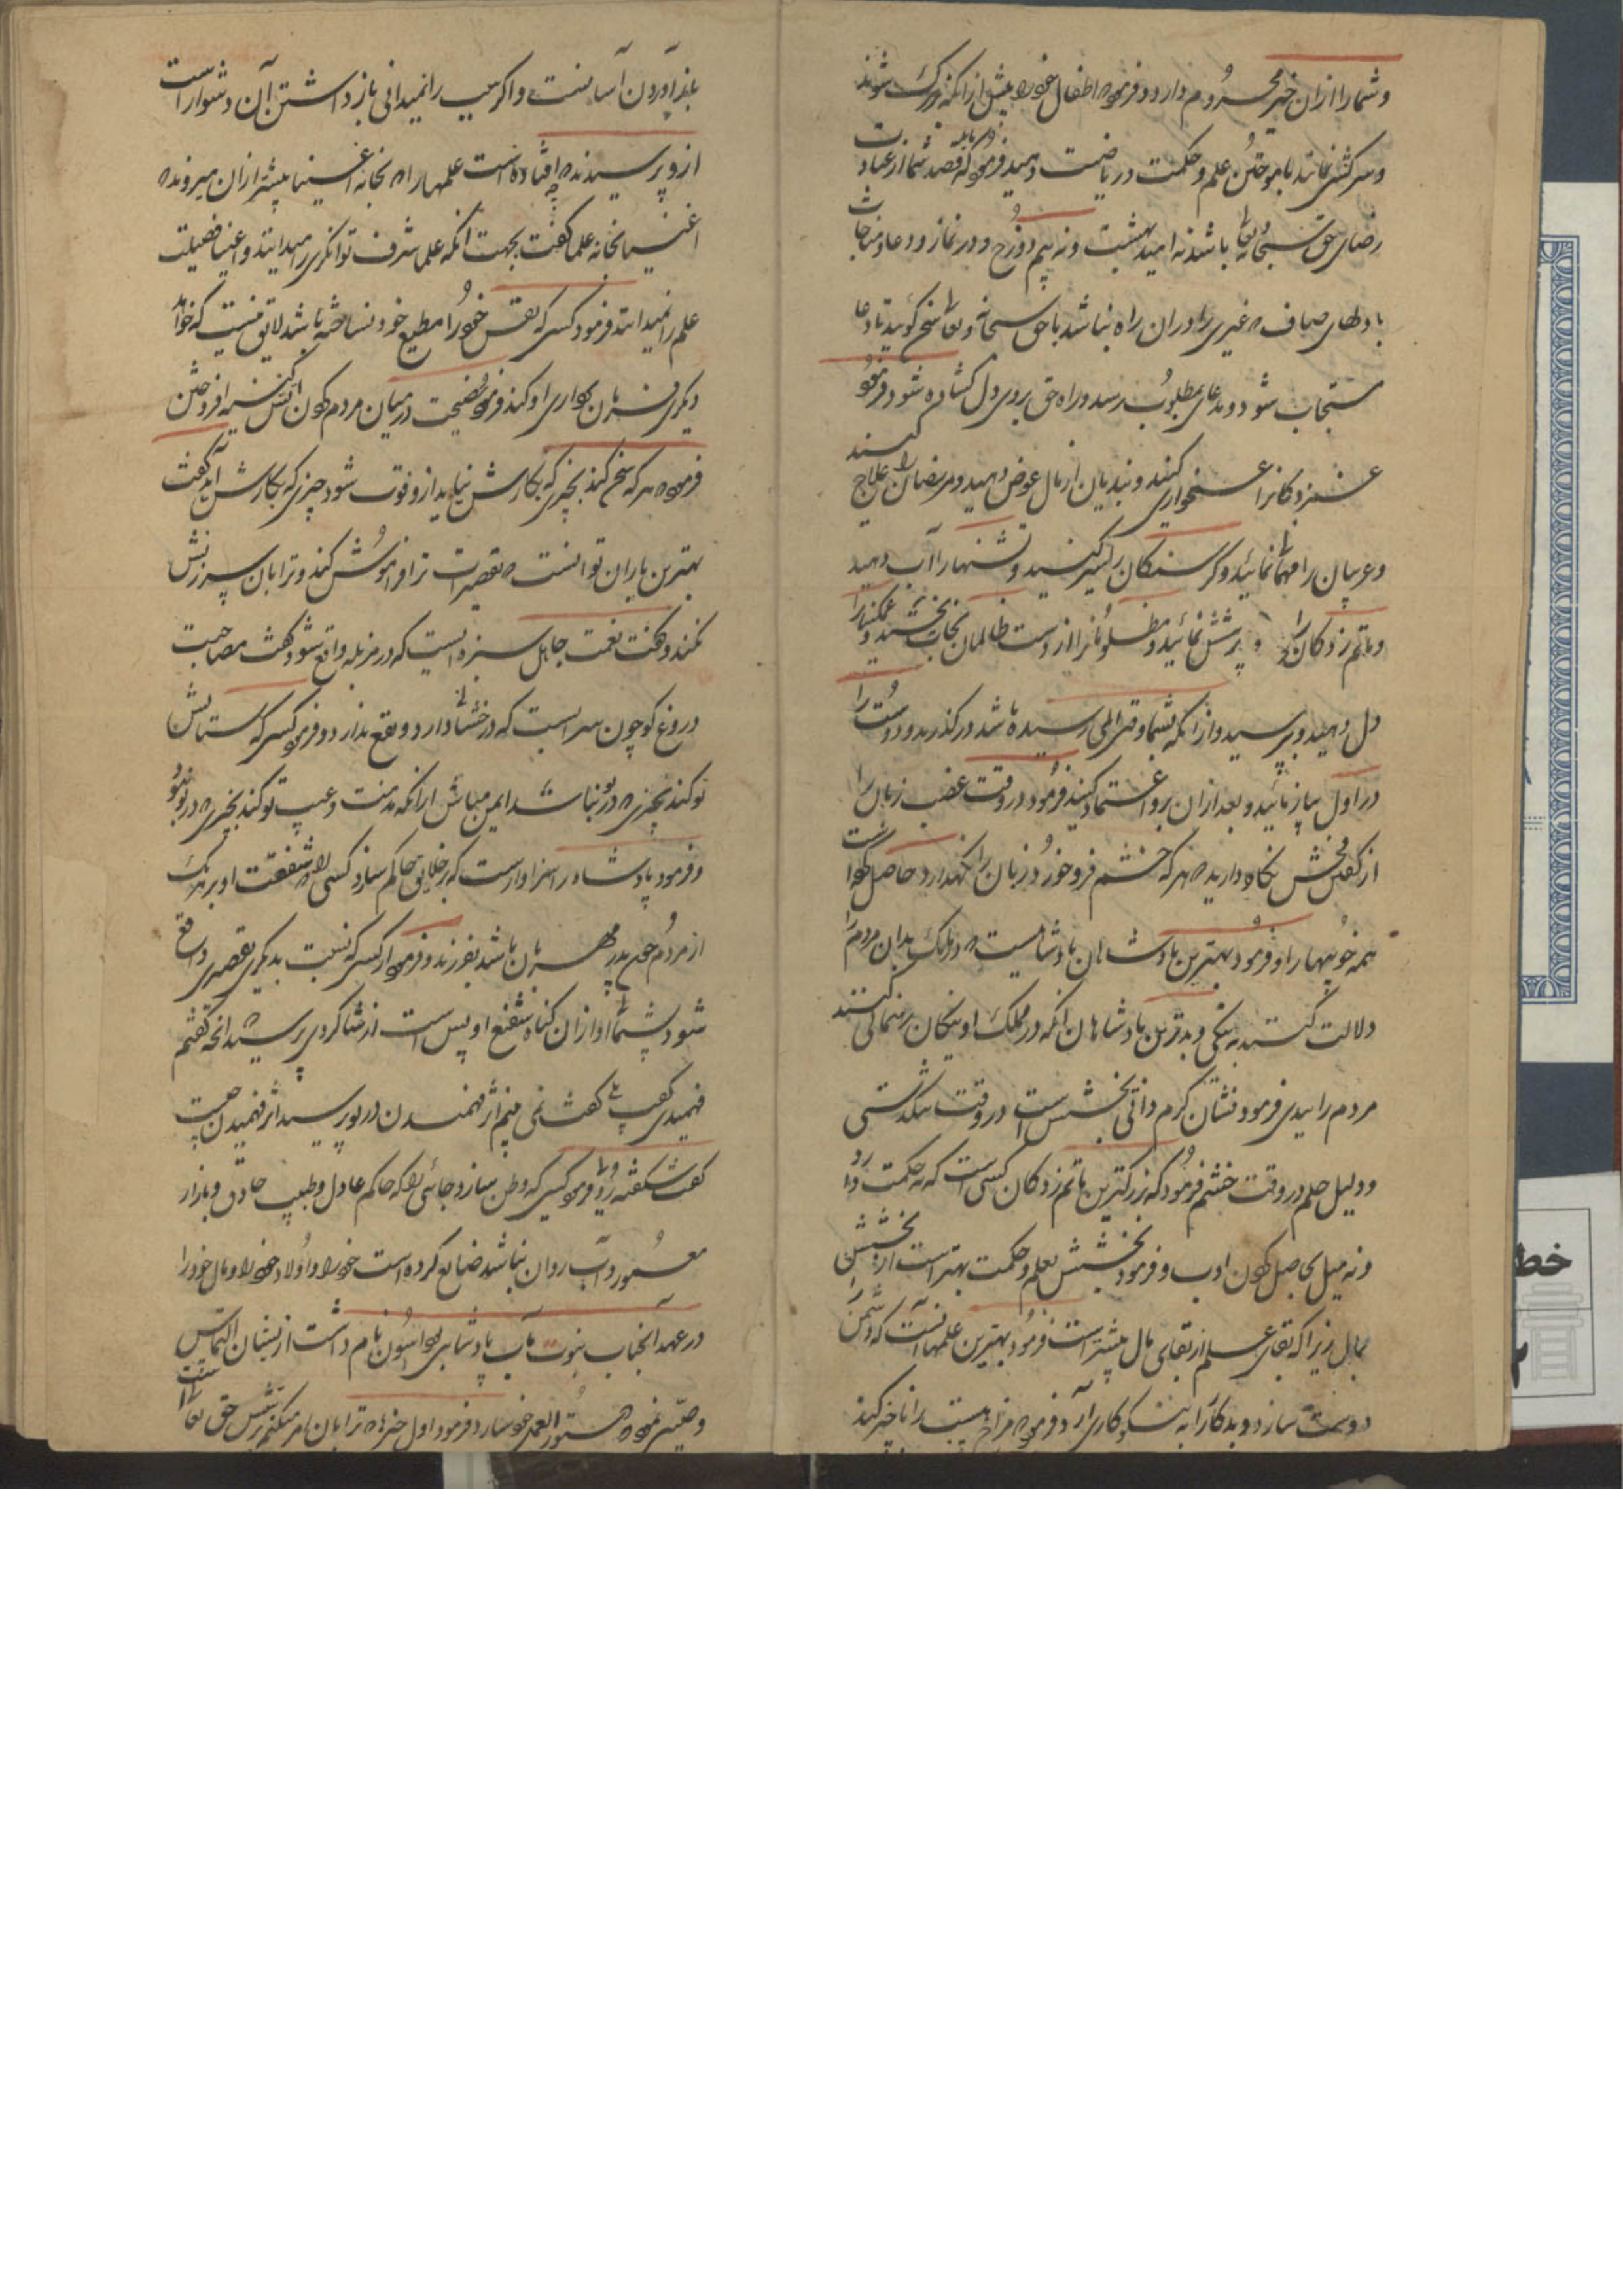 و شما را ازان خیر محروم دارد و فرمود اطفال خود را پیش ازانکه بزرک شوند
و سرکشی نمایند باموختن علم و حکمت و ریاضت دهید فرمود که قصد شما از عبادت
رضای حق سبحانه تعالی باشد نه امید بهشت و نه بیم دوزخ و در نماز و دعا و مناجات
با دلهای صاف که غیری را دران راه نباشد با حق سبحانه و تعالی سخن کوئید تا دعا
مستجاب شود و مدعای مطلوب رسد و راه حق بروی دل کشاده شود و فرمود
غمزدکانرا غمخواری کنید و بندیان از مال عوض دهید و مریضان را علاج کنید
و عریان را نمائید و کرسنکان را سیر کنید و تشنها را آب دهید
و ماتم زدکان را پرسش نمائید و مظلومانرا از دست ظالمان نجات بخشید و غمکینان را
دل دهید و بترسید و از آنکه بشما رسیده باشد درکذرید و دوست را
در اول بیازمائید و بعد ازان برو اعتماد کنید فرمود در وقت غضب زبان را
از کفتن فحش نکاه دارید که هر که خشم فرو خورد و زبان را نکهدارد حاصل کرده است
همه خوبیها را و فرمود بهترین پادشاهان پادشاهیست که در ملک بدان مردم را
دلالت کنند به نیکی و بدترین پادشاهان انکه در مملکت او نیکان رهنمائی کنند
مردم را ببدی فرمود نشان کرم ذاتی بخشش است در وقت تنکدستی
و دلیل حلم در وقت خشم فرمود که بزرکترین ماتم زدکان کسی است که نه حکمت دارد
و نه میل بحاصل کردن ادب و فرمود بخشش بعلم و حکمت بهتر است از بخشش
بمال زیرا که بقای علم از بقای مال بیشتر است فرمود بهترین علمها آنست که دشمن را
دوست سازد و بدکار را به نیکوکاری آرد و فرمود را تاخیر کند
باز آوردن آسانست و اکر سبب را نمیدانی باز داشتن آن دشوار است
ازو پرسیدند که چه افتاده است علمها را که بخانه اغنیا بیشتر ازان میروند که
اغنیا بخانه علما کفت بجهت انکه علما شرف توانکری را میدانند و اغنیا فضیلت
علم را نمیدانند فرمود کسی که نفس خود را مطیع خود نساخته باشد لایق نیست که خواهد
دیکری فرمان برداری او کند فرمود نصیحت در میان مردم کردن آتش کینه افروختن
فرمود هر که سخن کند بچیزی که بکارش نیاید ازو فوت شود چیزی که بکارش آید کفت
بهترین یاران تو آنست که تقصیرات ترا فراموش کند و ترا بان سرزنش
نکند و کفت نعمت جاهل سبزه ایست که در مزبله واقع شود کفت مصاحبت
دروغ کو چون سرابست که درخشانی دارد و نفع ندارد و فرمود کسی که ستایش
تو کند بچیزی که در تو نباشد ایمن مباش ازانکه مذمت و عیب تو کند بچیزی که در تو نبود
و فرمود پادشاه را سزاوار است که بر خلایق حاکم سازد کسی را که شفقت او بر هر یک
از مردم چون پدر مهربان باشد بفرزند و فرمود اکر کسی که نسبت بدیکری تقصیری واقع
شود پشیمانی او ازان کناه شفیع او بس است از شاکردی پرسید که انچه کفتم
فهمیدی کفت بلی کفت نمی بینم اثر فهمیدن در تو پرسید اثر فهمیدن چیست
کفت شکفته روئی فرمود کسی که وطن سازد جائی را که حاکم عادل و طبیب حاذق و بازار
معمور و آب روان نباشد ضایع کرده است خود را و اولاد خود را و مال خود را
در عهد آنجناب نبوت مآب پادشاهی بود امون نام داشت ازیشان التماس
وصیتی نمود که دستور العمل خود سازد فرمود اول چیزی که ترا بان امر میکنم پرستش حق تعالی است